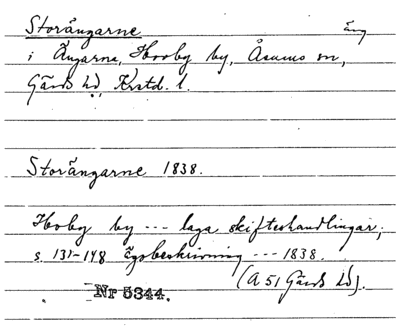 Storängarne äng
i Ängarna, Hovby by, Åsums sn,
Gärds hd, Krstd. l.
Storängarne 1838.
Hovby by --- laga skifteshandlingar;
s. 131-148 Ägobeskrivning --- 1838.
(A 51 Gärds hd).
Nr 5344.